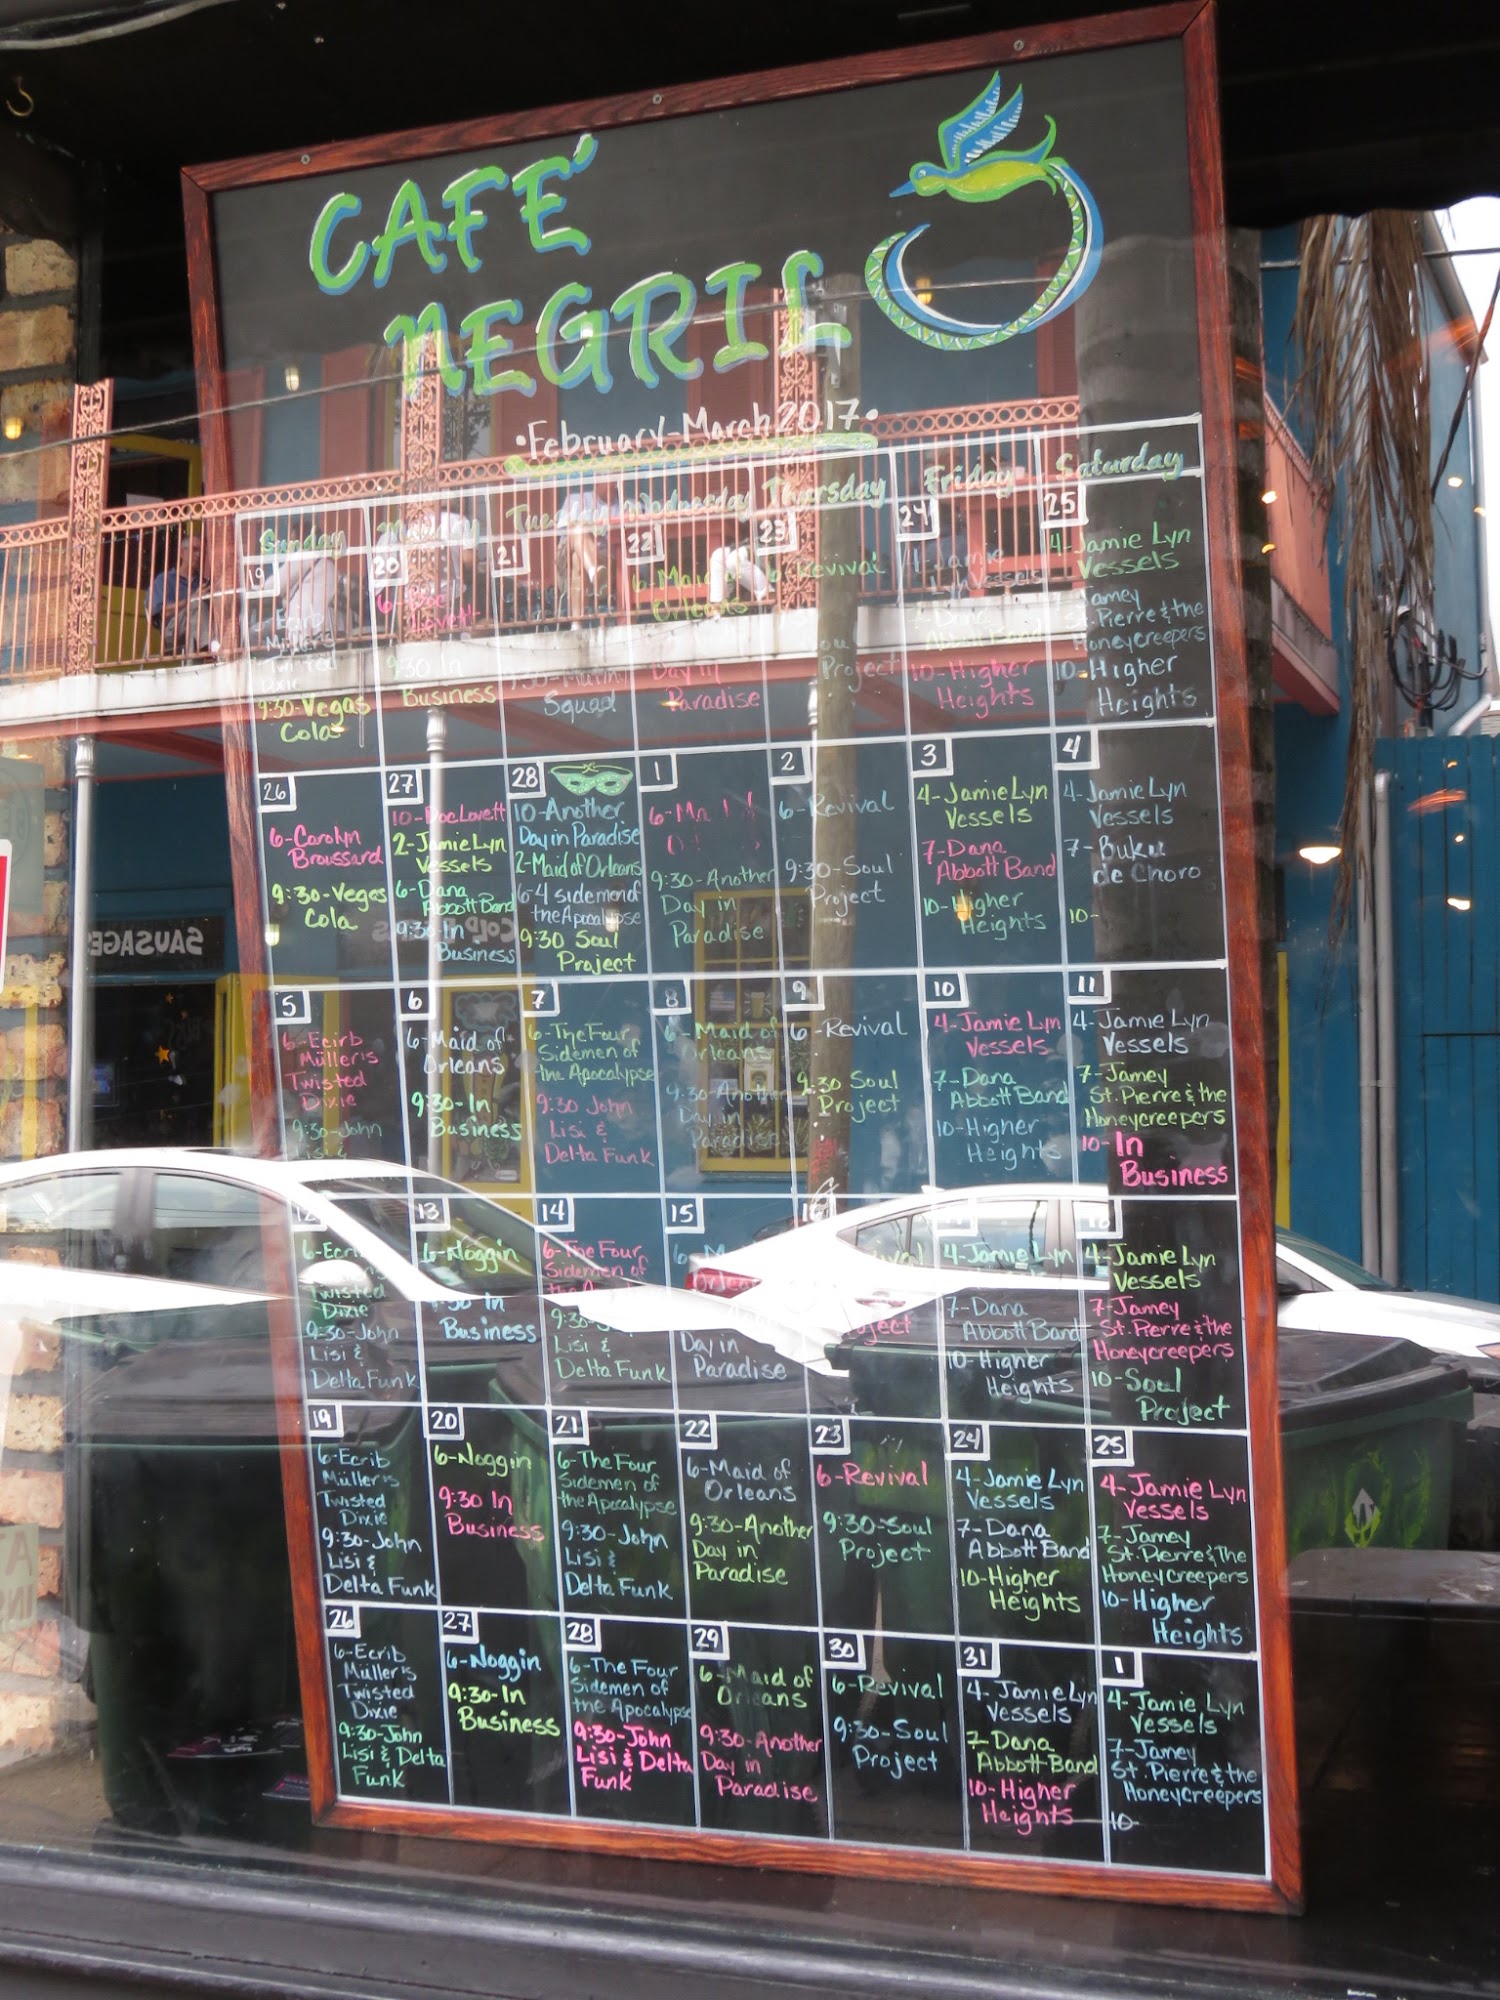 CAFÉ
NEGRIL
•February-March 2017•
Sunday
Monday
Tuesday
Wednesday
Thursday
Friday
Saturday
19
Ecirb
Müller's
Twisted
Dixie
9:30-Vegas
Cola
20
Lovett
9:30 In
Business
21
Squad
22
6-Maid of
Orleans
Day in
Paradise
23
Revival
Soul
Project
24
4-Jamie
Lyn Vessels
Dana
Abbott Band
10-Higher
Heights
25
4-Jamie Lyn
Vessels
7-Jamey
St. Pierre & the
Honeycreepers
10-Higher
Heights
26
6-Carolyn
Broussard
9:30-Vegas
Cola
27
10-Doc Lovett
2-Jamie Lyn
Vessels
6-Dana
Abbott Band
9:30-In
Business
28
10-Another
Day in Paradise
2-Maid of Orleans
6-4 sidemen of
the Apocalypse
9:30 Soul
Project
1
9:30-Another
Day in
Paradise
2
6-Revival
9:30-Soul
Project
3
4-Jamie Lyn
Vessels
7-Dana
Abbott Band
10-Higher
Heights
4
4-Jamie Lyn
Vessels
7-Buku
de Choro
10-
5
6-Ecirb
Müller's
Twisted
Dixie
9:30-John
Lisi &
6
6-Maid of
Orleans
9:30-In
Business
7
6-The Four
Sidemen of
the Apocalypse
9:30 John
Lisi &
Delta Funk
8
6-Maid of
Orleans
9:30-Another
Day in
Paradise
9
6-Revival
9:30 Soul
Project
10
4-Jamie Lyn
Vessels
7-Dana
Abbott Band
10-Higher
Heights
11
4-Jamie Lyn
Vessels
7-Jamey
St. Pierre & the
Honeycreepers
10-In
Business
12
6-Ecirb
Twisted
Dixie
9:30-John
Lisi &
Delta Funk
13
6-Noggin
9:30 In
Business
14
6-The Four
Sidemen of
Lisi &
Delta Funk
15
Orleans
Day in
Paradise
16
Revival
Project
4-Jamie Lyn
7-Dana
Abbott Band
10-Higher
Heights
18
4-Jamie Lyn
Vessels
7-Jamey
St. Pierre & the
Honeycreepers
10-Soul
Project
19
6-Ecrib
Müller's
Twisted
Dixie
9:30-John
Lisi &
Delta Funk
20
6-Noggin
9:30 In
Business
21
6-The Four
Sidemen of
the Apocalypse
9:30-John
Lisi &
Delta Funk
22
6-Maid of
Orleans
9:30-Another
Day in
Paradise
23
6-Revival
9:30-Soul
Project
24
4-Jamie Lyn
Vessels
7-Dana
Abbott Band
10-Higher
Heights
25
4-Jamie Lyn
Vessels
7-Jamey
St. Pierre & the
Honeycreepers
10-Higher
Heights
26
6-Ecrib
Müller's
Twisted
Dixie
9:30-John
Lisi & Delta
Funk
27
6-Noggin
9:30-In
Business
28
6-The Four
Sidemen of
the Apocalypse
9:30-John
Lisi & Delta
Funk
29
6-Maid of
Orleans
9:30-Another
Day in
Paradise
30
6-Revival
9:30-Soul
Project
31
4-Jamie Lyn
Vessels
7-Dana
Abbott Band
10-Higher
Heights
1
4-Jamie Lyn
Vessels
7-Jamey
St. Pierre & the
Honeycreepers
10-
SAUSAGE